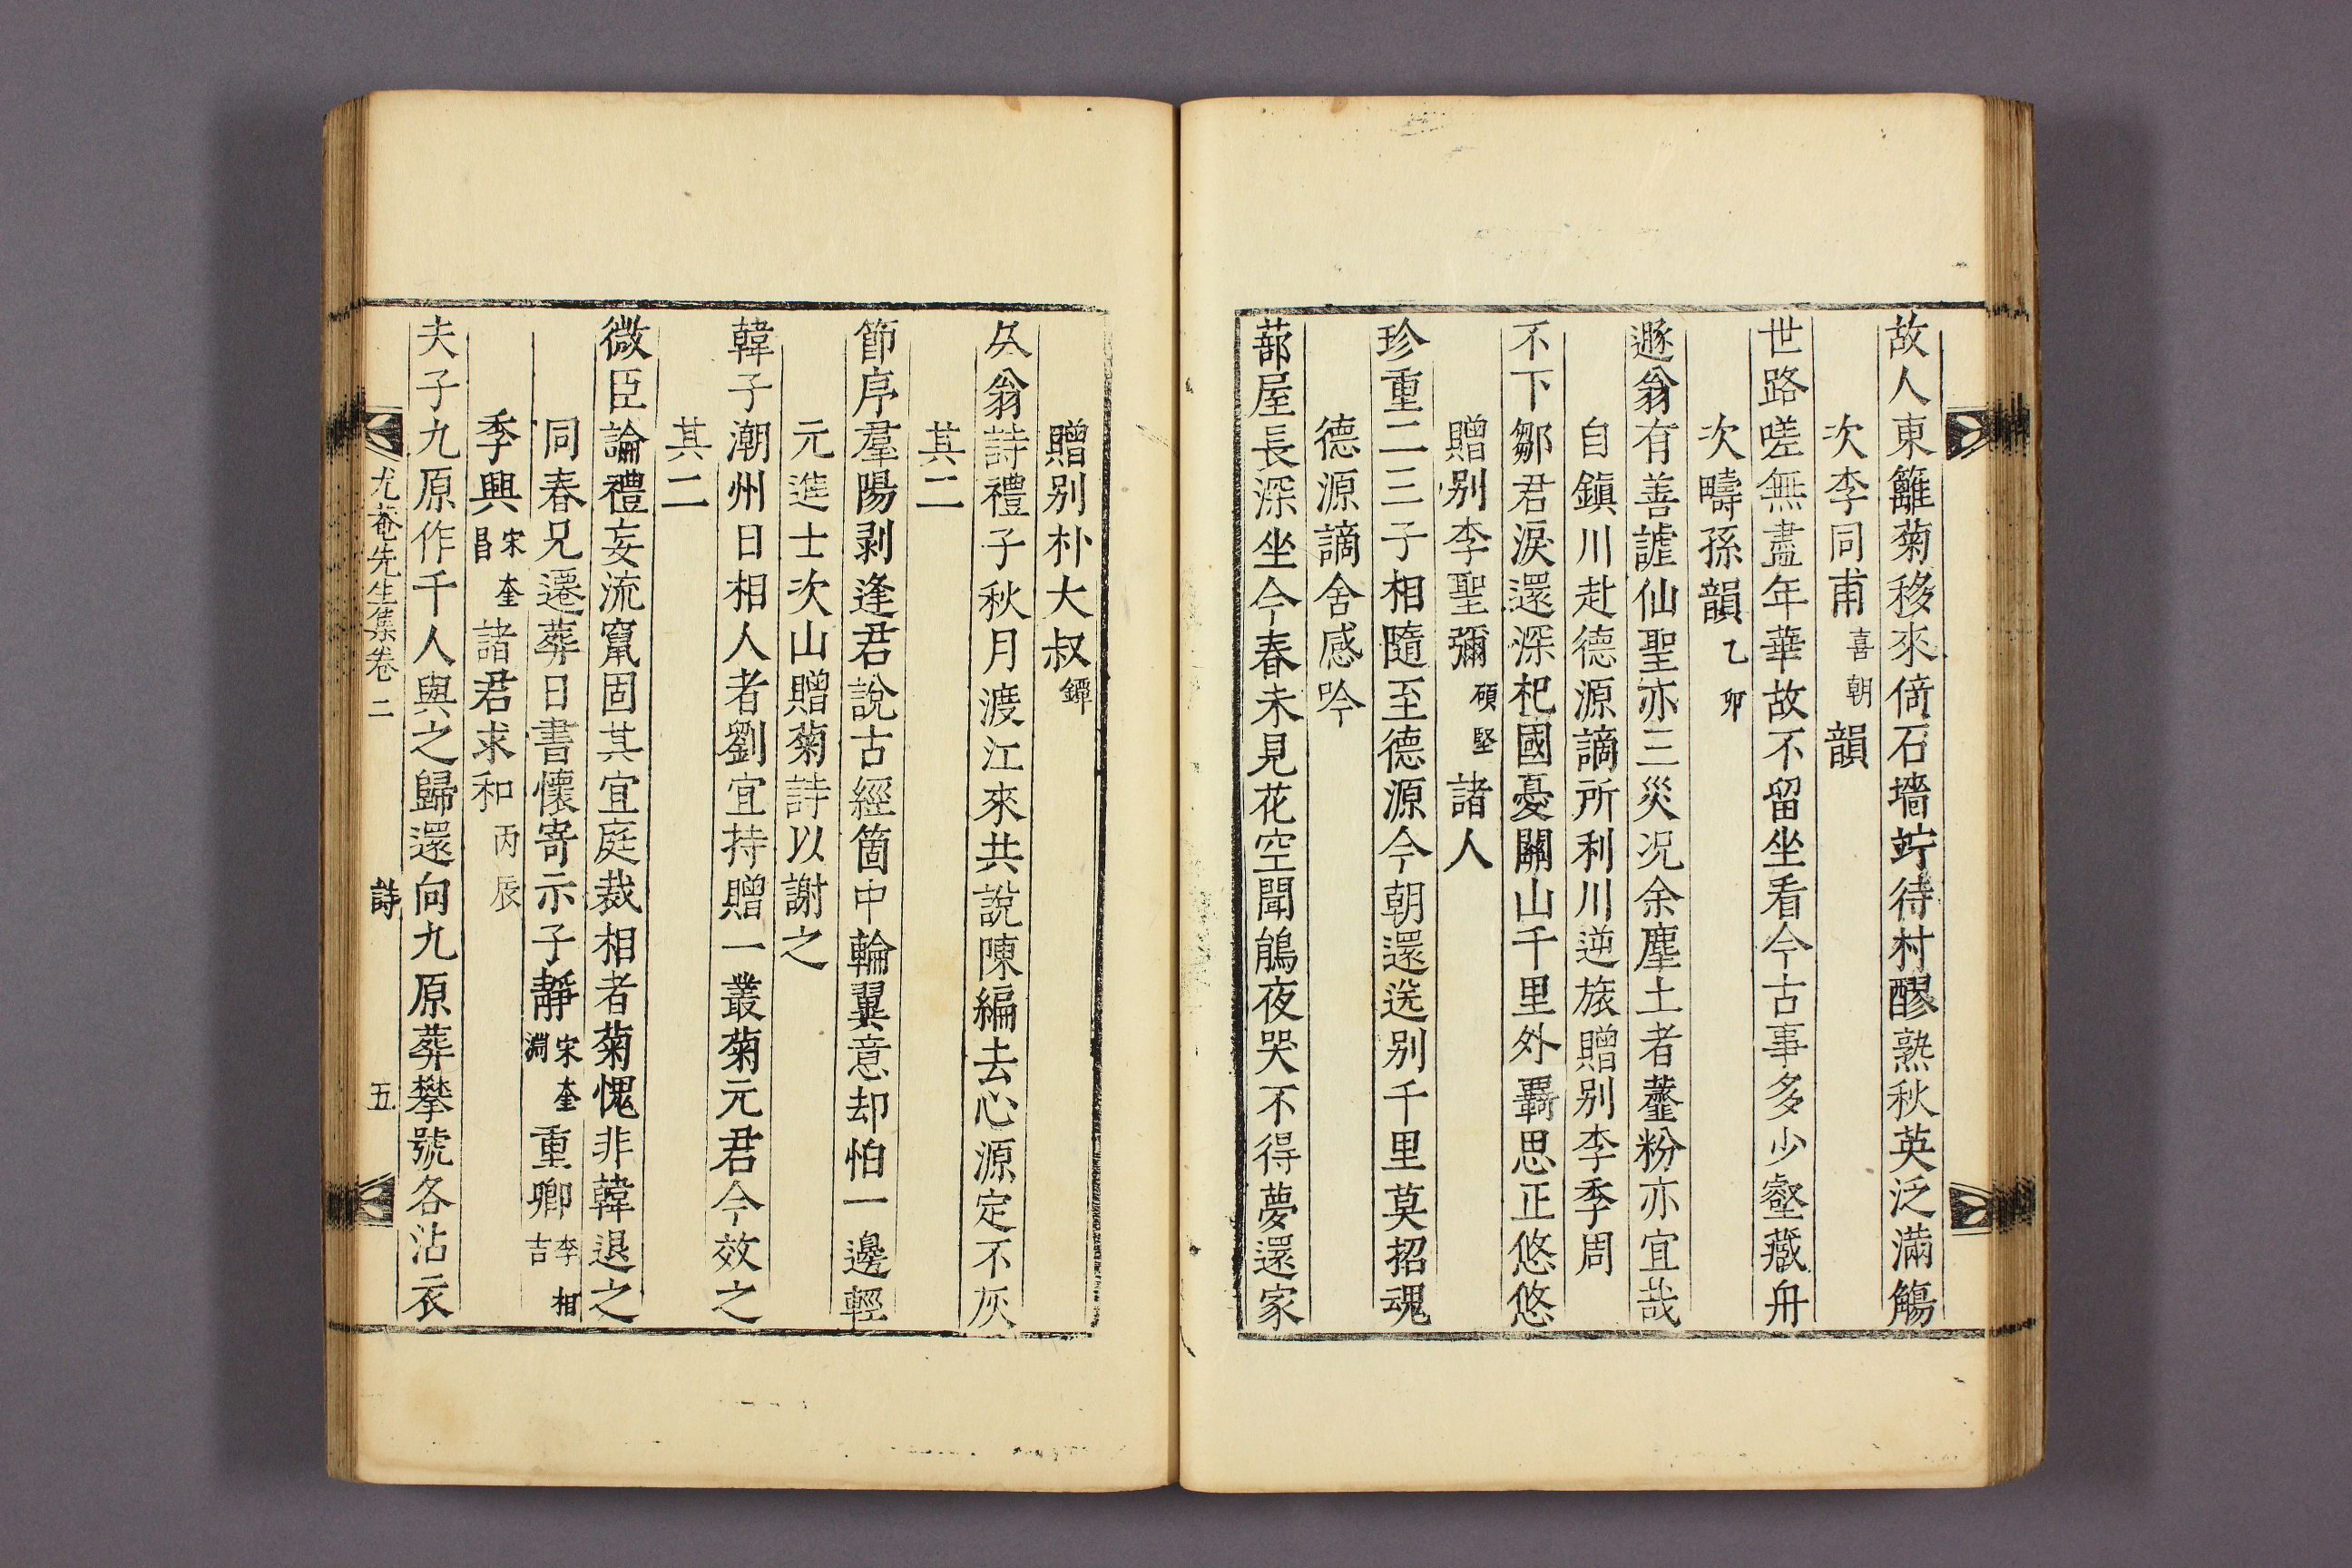 故人東籬菊移來倚石墻竚待村醪熟秋英泛滿觴
次李同甫喜朝韻
世路嗟無盡年華故不留坐看今古事多少壑藏舟
次疇孫韻乙卯
遯翁有善謔仙聖亦三災况余塵土者虀粉亦宜哉
自鎭川赴德源謫所利川逆旅贈别李季周
不下鄒君淚還深杞國憂關山千里外覊思正悠悠
贈别李聖彌碩堅諸人
珍重二三子相隨至德源今朝還送别千里莫招魂
德源謫舍感吟
蔀屋長深坐今春未見花空聞鵑夜哭不得夢還家
贈别朴大叔鐔
久翁詩禮子秋月渡江來共說陳編去心源定不灰
其二
節序羣陽剥逢君說古經箇中輪翼意却怕一邊輕
元進士次山贈菊詩以謝之
韓子潮州日相人者劉宜持贈一叢菊元君今效之
其二
微臣論禮妄流竄固其宜庭裁相者菊愧非韓退之
同春兄遷葬日書懷寄示子靜宋奎淵重卿李相吉
季興宋奎昌諸君求和丙辰
夫子九原作千人與之歸還向九原葬攀號各沾衣
尤菴先生集卷二 詩 五